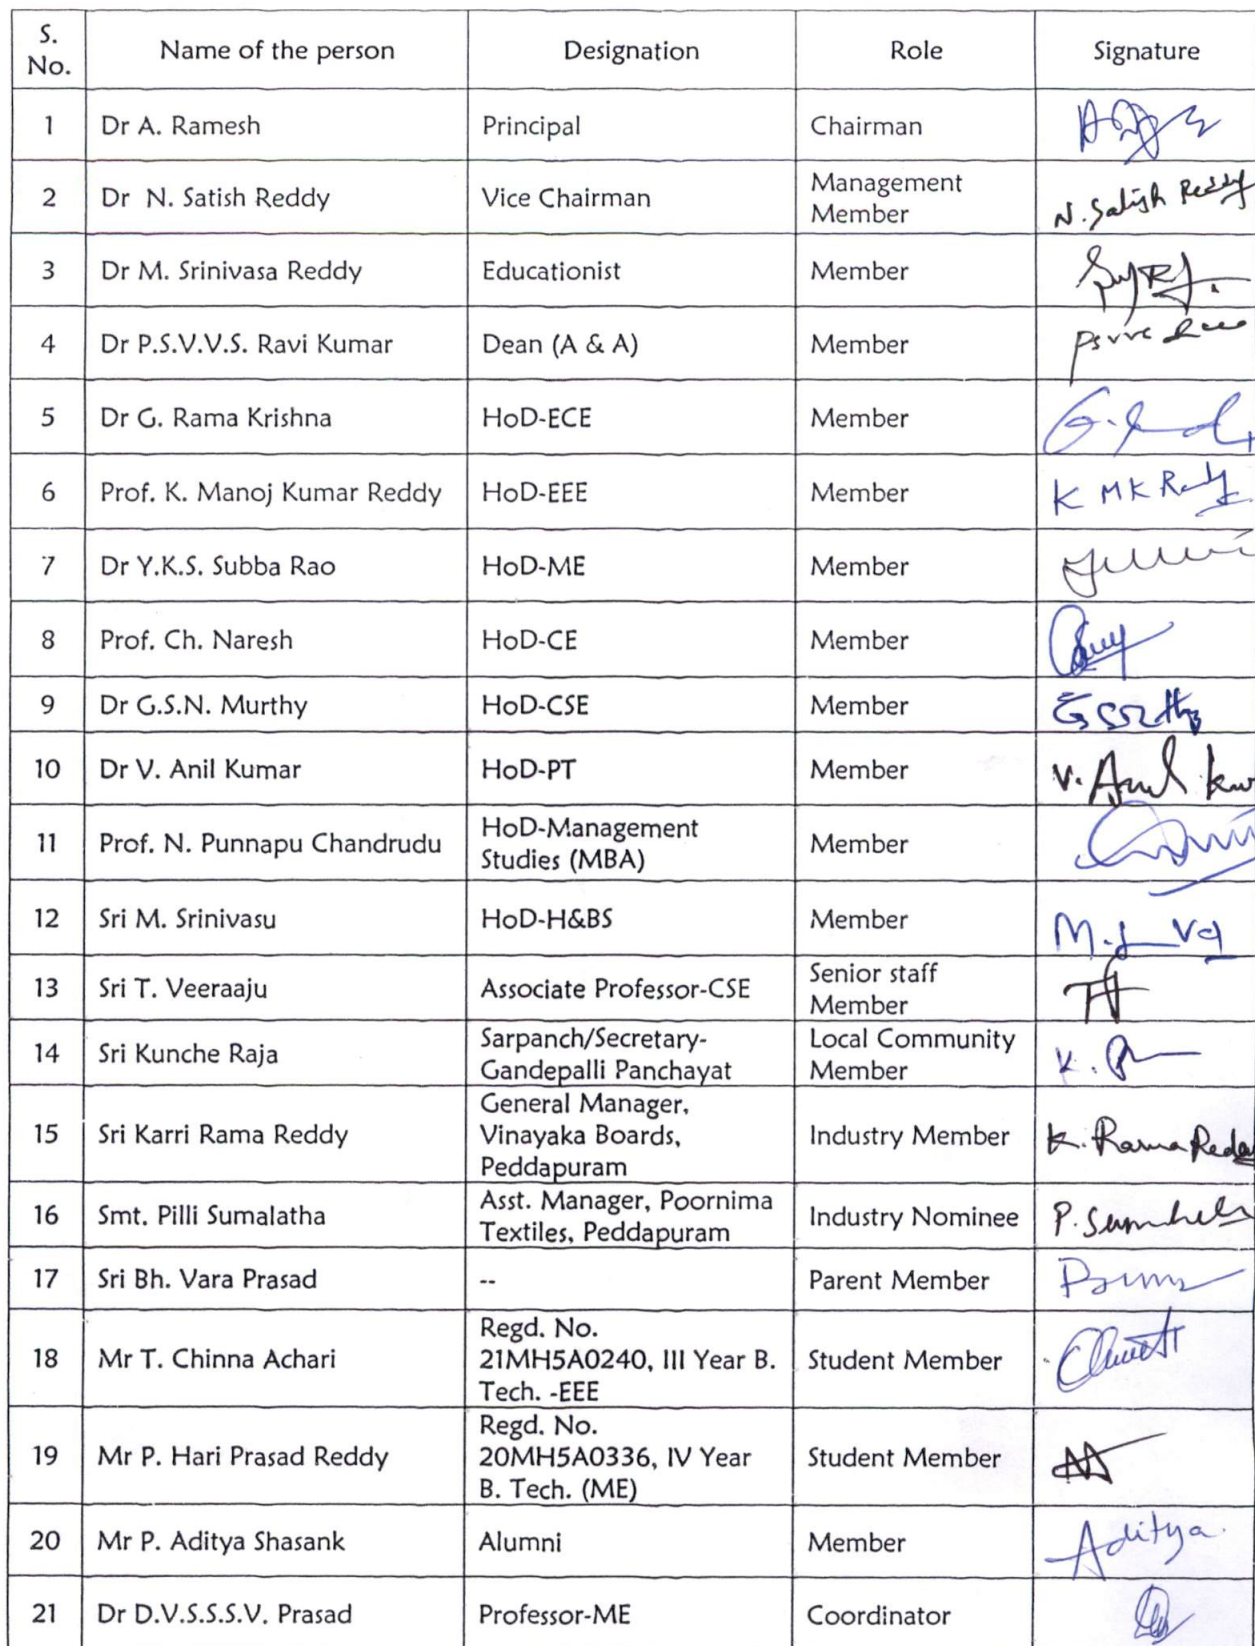 S. No. Name of the person Designation Role Signature
1 Dr A. Ramesh Principal Chairman
2 Dr N. Satish Reddy Vice Chairman Management Member N. Satish Reddy
3 Dr M. Srinivasa Reddy Educationist Member
4 Dr P.S.V.V.S. Ravi Kumar Dean (A & A) Member
5 Dr G. Rama Krishna HoD-ECE Member
6 Prof. K. Manoj Kumar Reddy HoD-EEE Member K MK Reddy
7 Dr Y.K.S. Subba Rao HoD-ME Member
8 Prof. Ch. Naresh HoD-CE Member
9 Dr G.S.N. Murthy HoD-CSE Member
10 Dr V. Anil Kumar HoD-PT Member V. Anil
11 Prof. N. Punnapu Chandrudu HoD-Management Studies (MBA) Member
12 Sri M. Srinivasu HoD-H&BS Member
13 Sri T. Veeraaju Associate Professor-CSE Senior staff Member
14 Sri Kunche Raja Sarpanch/Secretary-
Gandepalli Panchayat Local Community Member
15 Sri Karri Rama Reddy General Manager,
Vinayaka Boards,
Peddapuram Industry Member K. Rama Reddy
16 Smt. Pilli Sumalatha Asst. Manager, Poornima
Textiles, Peddapuram Industry Nominee
17 Sri Bh. Vara Prasad -- Parent Member
18 Mr T. Chinna Achari Regd. No.
21MH5A0240, III Year B.
Tech. -EEE Student Member
19 Mr P. Hari Prasad Reddy Regd. No.
20MH5A0336, IV Year
B. Tech. (ME) Student Member
20 Mr P. Aditya Shasank Alumni Member Aditya
21 Dr D.V.S.S.S.V. Prasad Professor-ME Coordinator